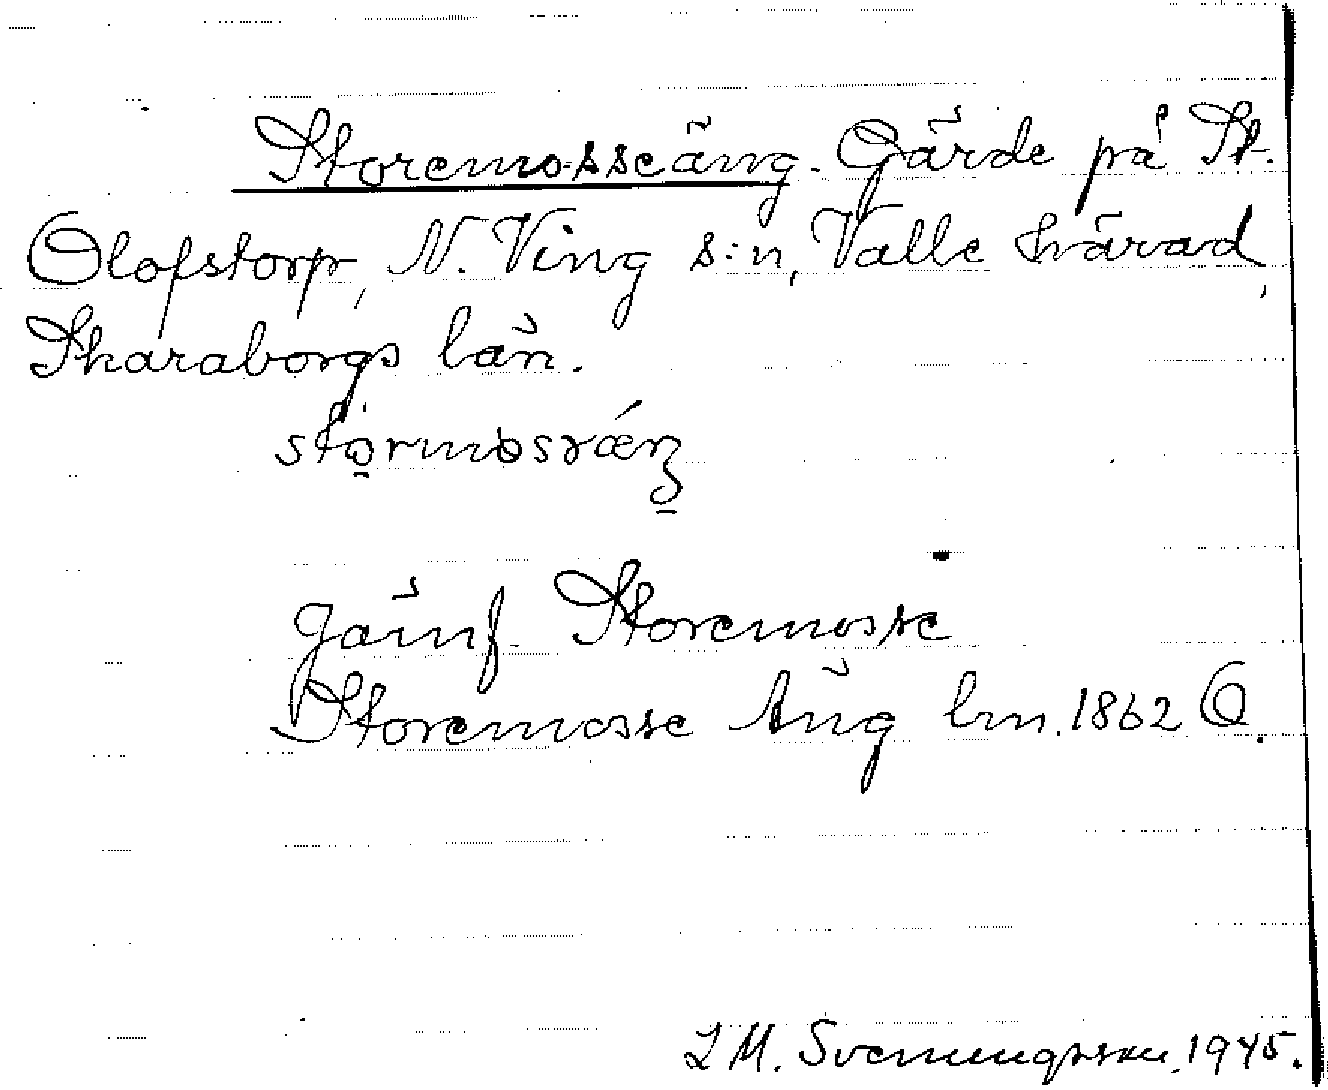 Storemosseäng. Gärde på St.
Olofstorp, N. Ving s:n, Valle härad,
Skaraborgs län.
Jämf. Storemosse
Storemosse Äng lm. 1862 O.
L M. Svenungsson. 1945.